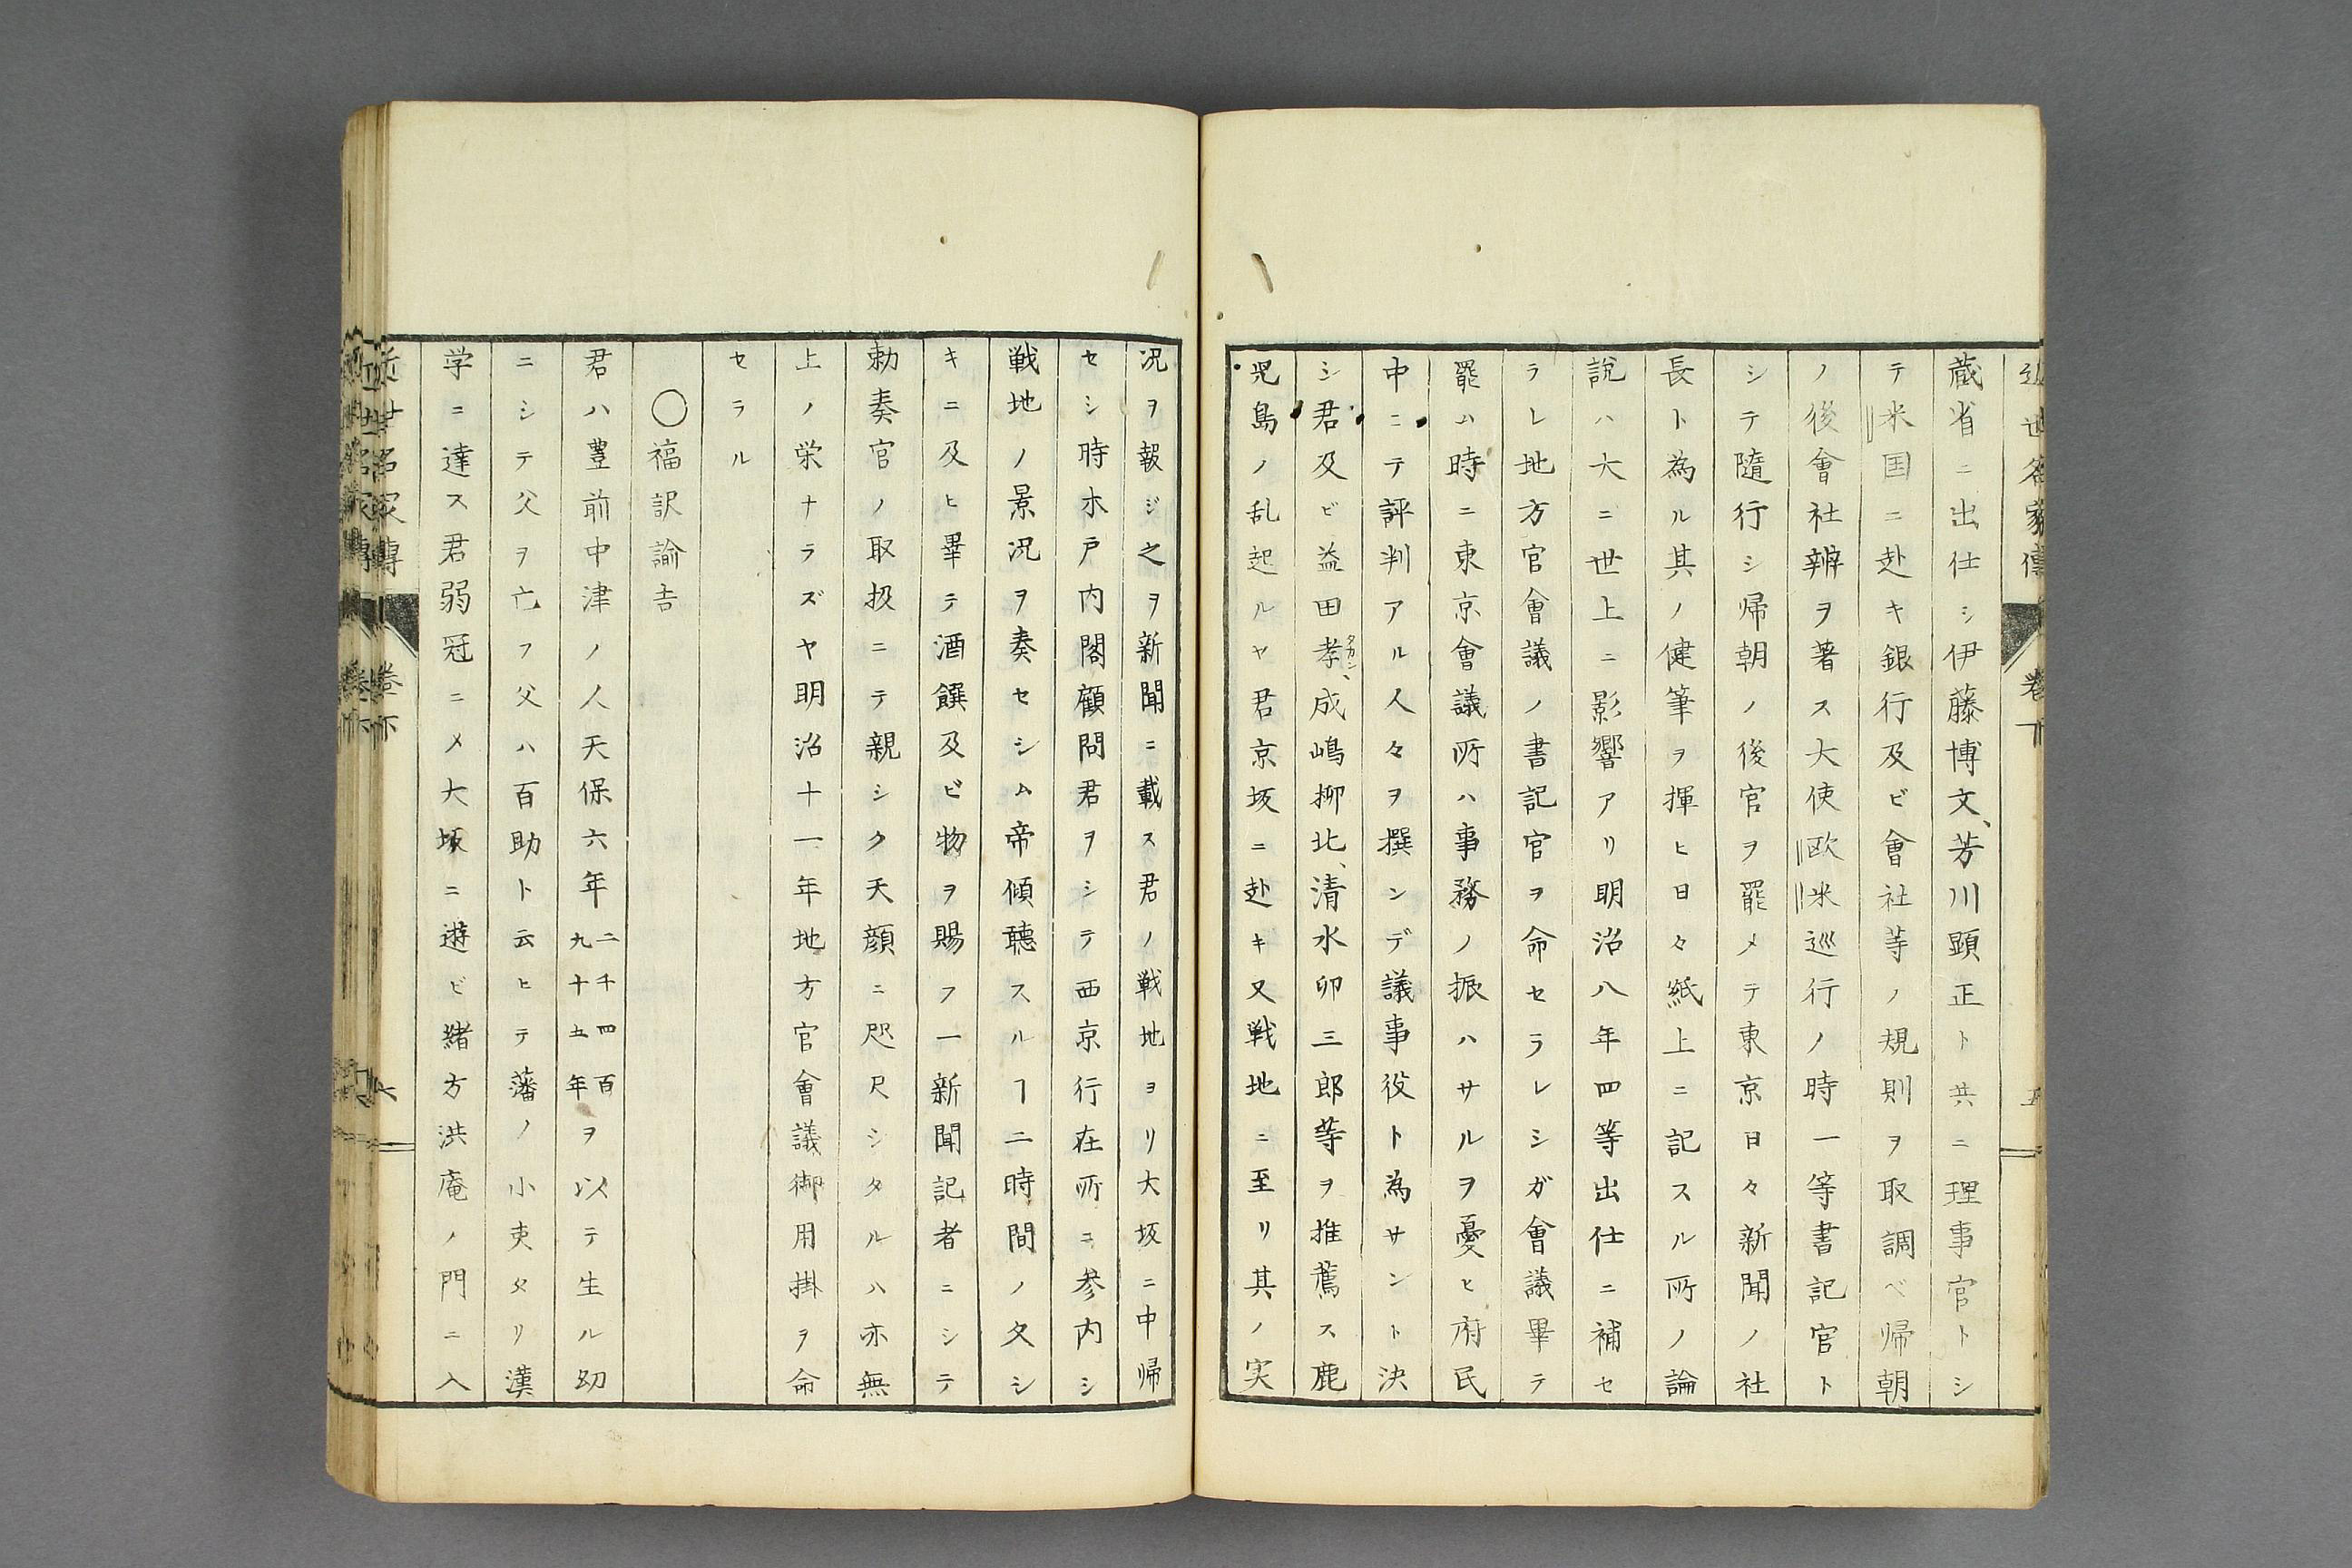 蔵省ニ出仕シ伊藤博文、芳川顕正ト共ニ理事官トシ
テ米国ニ赴キ銀行及ビ會社等ノ規則ヲ取調ベ帰朝
ノ後會社辨ヲ著ス大使欧米巡行ノ時一等書記官ト
シテ隨行シ帰朝ノ後官ヲ罷メテ東京日々新聞ノ社
長ト為ル其ノ健筆ヲ揮ヒ日々紙上ニ記スル所ノ論
説ハ大ニ世上ニ影響アリ明治八年四等出仕ニ補セ
ラレ地方官會議ノ書記官ヲ命セラレシガ會議畢テ
罷ム時ニ東京會議所ハ事務ノ振ハサルヲ憂ヒ府民
中ニテ評判アル人々ヲ撰ンデ議事役ト為サント決
シ君及ビ益田孝、成嶋柳北、清水卯三郎等ヲ推薦ス鹿
児島ノ乱起ルヤ君京坂ニ赴キ又戦地ニ至リ其ノ実
況ヲ報ジ之ヲ新聞ニ載ス君ノ戦地ヨリ大坂ニ中帰
セシ時木戸内閣顧問君ヲシテ西京行在所ニ参内シ
戦地ノ景況ヲ奏セシム帝傾聴スルヿ二時間ノ久シ
キニ及ヒ畢テ酒饌及ビ物ヲ賜フ一新聞記者ニシテ
勅奏官ノ取扱ニテ親シク天顔ニ咫尺シタルハ亦無
上ノ栄ナラズヤ明治十一年地方官會議御用掛ヲ命
セラル
〇福訳諭吉
君ハ豊前中津ノ人天保六年二千四百九十五年ヲ以テ生ル幼
ニシテ父ヲ亡フ父ハ百助ト云ヒテ藩ノ小吏タリ漢
学ニ達ス君弱冠ニメ大坂ニ遊ビ緒方洪庵ノ門ニ入
近世名家傳 卷下